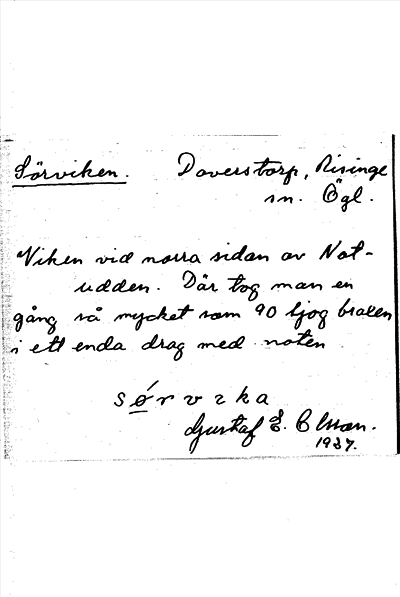 Sörviken. Daverstorp, Risinge
sn. Ögl.
Viken vid norra sidan av Not-
udden. Där tog man en
gång så mycket som 90 tjog braxen
i ett enda drag med noten
sørvıka
Gustaf E. Olsson.
1937.